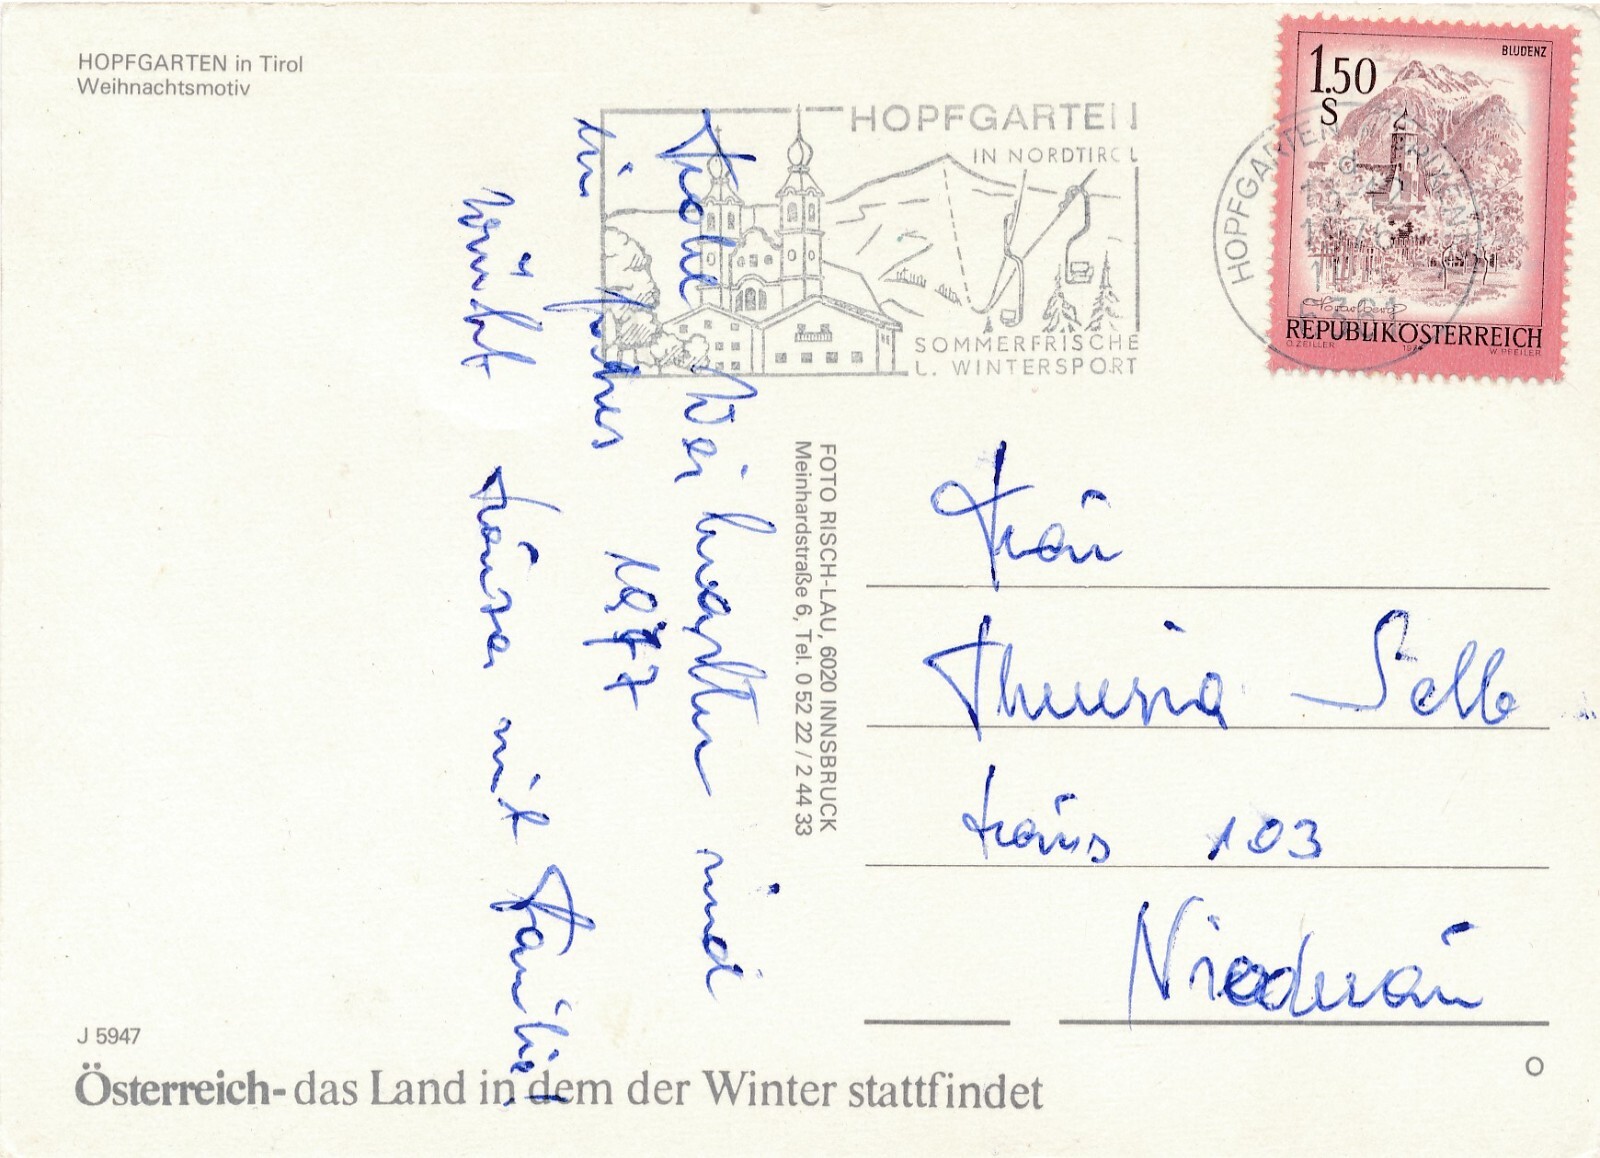 HOPFGARTEN in Tirol
Weihnachtsmotiv
HOPFGARTEN
IN NORDTIROL
SOMMERFRISCHE
U. WINTERSPORT
BLUDENZ
1.50
S
Vorarlberg
REPUBLIK ÖSTERREICH
O. ZEILLER
W. PFEILER
HOPFGARTEN
6361
Frohe Weihnachten und
ein gutes 1977
wünscht
mit Familie
FOTO RISCH-LAU, 6020 INNSBRUCK
Meinhardstraße 6, Tel. 0 52 22 / 2 44 33
Frau
Theresia Selb
Haus 103
Niederau
J 5947
Österreich- das Land in dem der Winter stattfindet
O